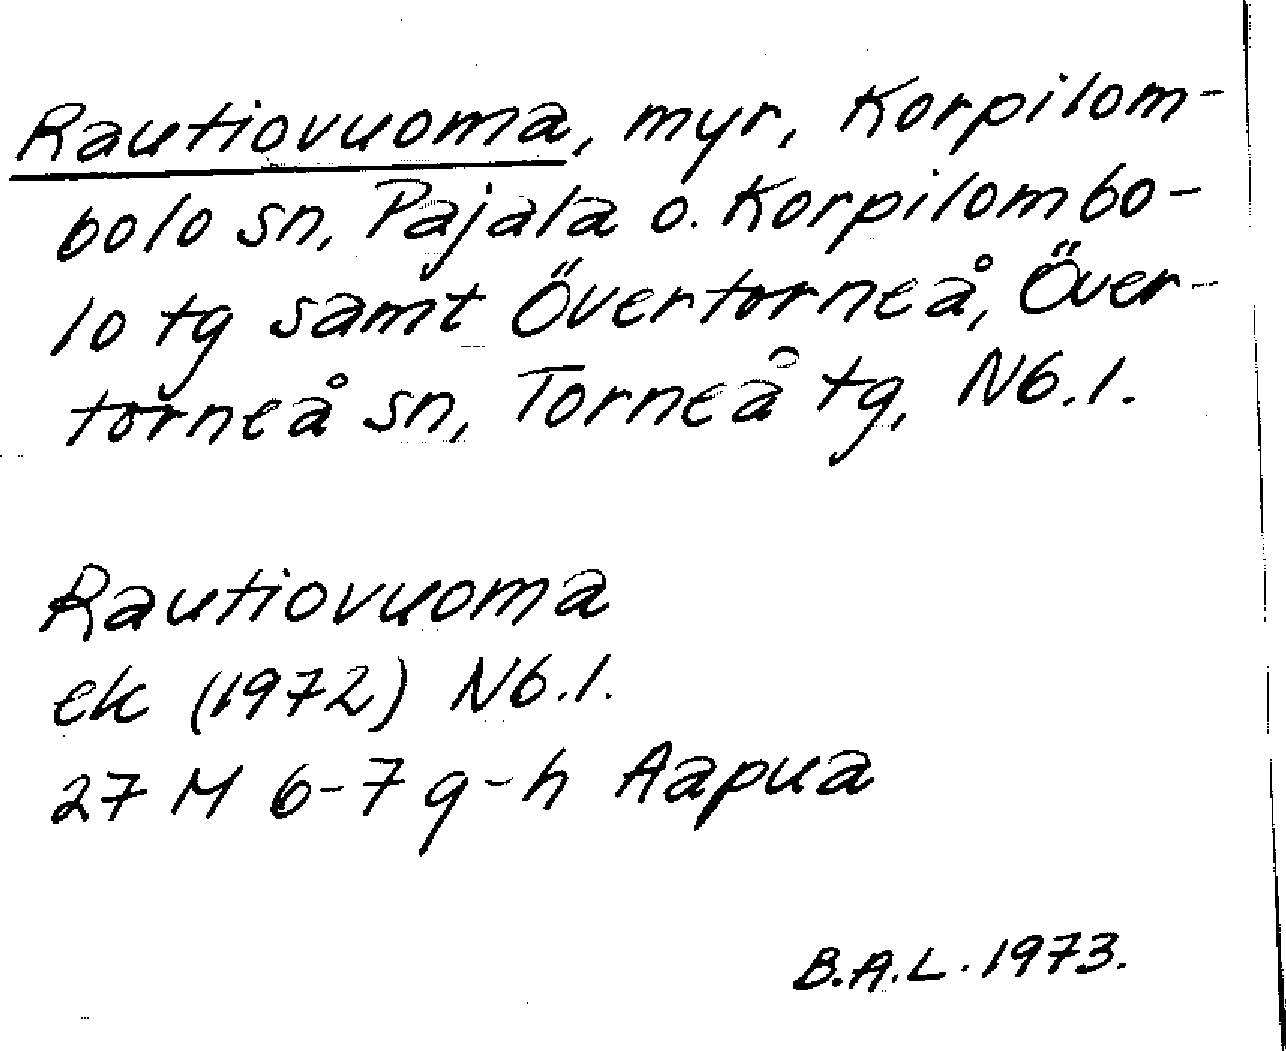 Rautiovuoma, myr, Korpilom-
bolo sn, Pajala o. Korpilombo-
lo tg samt Övertorneå, Över-
torneå sn, Torneå tg, Nb.l.
Rautiovuoma
ek (1972) Nb.l.
27 M 6-7 g-h Aapua
B.A.L. 1973.